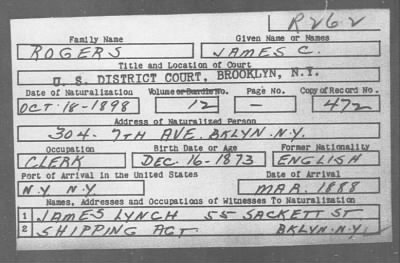 R262
Family Name Given Name or Names
ROGERS JAMES C.
Title and Location of Court
U. S. DISTRICT COURT, BROOKLYN, N.Y.
Date of Naturalization Volume or Bundle No. Page No. Copy of Record No.
OCT-18-1898 12 — 472
Address of Naturalized Person
304. 7TH AVE. BKLYN. N.Y.
Occupation Birth Date or Age Former Nationality
CLERK DEC. 16-1873 ENGLISH
Port of Arrival in the United States Date of Arrival
N.Y N.Y. MAR. 1888
Names, Addresses and Occupations of Witnesses To Naturalization
1 JAMES LYNCH 55 SACKETT ST
2 SHIPPING AGT BKLYN. N.Y.